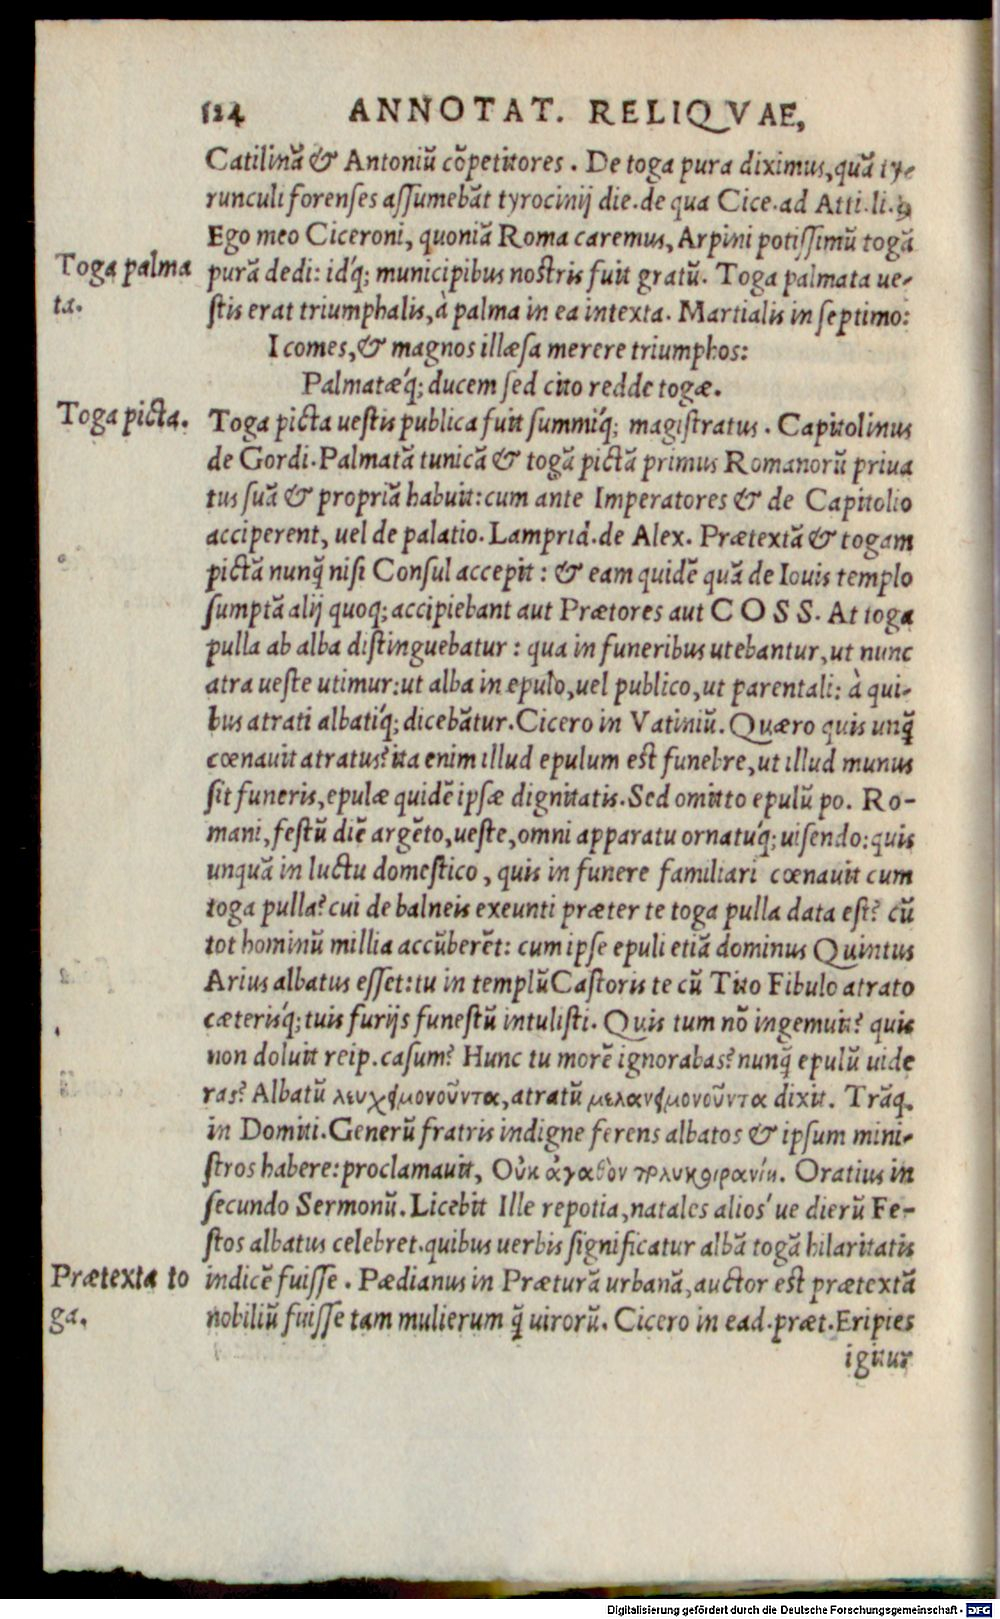 524 ANNOTAT. RELIQVAE,
Catilinā & Antoniū cōpetitores. De toga pura diximus, quā ty-
runculi forenses assumebāt tyrocinij die. de qua Cice. ad Atti. li. 9
Ego meo Ciceroni, quoniā Roma caremus, Arpini potissimū togā
Toga palma
purā dedi: idq́; municipibus nostris fuit gratū. Toga palmata ue-
ta.
stis erat triumphalis, à palma in ea intexta. Martialis in septimo:
I comes, & magnos illæsa merere triumphos:
Palmatæq́; ducem sed cito redde togæ.
Toga picta.
Toga picta uestis publica fuit summiq́; magistratus. Capitolinus
de Gordi. Palmatā tunicā & togā pictā primus Romanorū priua
tus suā & propriā habuit: cum ante Imperatores & de Capitolio
acciperent, uel de palatio. Lamprid. de Alex. Prætextā & togam
pictā nunq̄ nisi Consul accepit: & eam quidē quā de Iouis templo
sumptā alij quoq; accipiebant aut Prætores aut COSS. At toga
pulla ab alba distinguebatur: qua in funeribus utebantur, ut nunc
atra ueste utimur: ut alba in epulo, uel publico, ut parentali: à qui-
bus atrati albatiq́; dicebātur. Cicero in Vatiniū. Quæro quis unq̄
cœnauit atratus? ita enim illud epulum est funebre, ut illud munus
sit funeris, epulæ quidē ipsæ dignitatis. Sed omitto epulū po. Ro-
mani, festū diē argēto, ueste, omni apparatu ornatuq́; uisendo: quis
unquā in luctu domestico, quis in funere familiari cœnauit cum
toga pulla? cui de balneis exeunti præter te toga pulla data est? cū
tot hominū millia accūberēt: cum ipse epuli etiā dominus Quintus
Arius albatus esset: tu in templū Castoris te cū Tito Fibulo atrato
cæterisq́; tuis furijs funestū intulisti. Quis tum nō ingemuit? quis
non doluit reip. casum? Hunc tu morē ignorabas? nunq̄ epulū uide
ras? Albatū λευχειμονοῦντα, atratū μελανειμονοῦντα dixit. Trāq.
in Domiti. Generū fratris indigne ferens albatos & ipsum mini-
stros habere: proclamauit, Οὐκ ἀγαθὸν πολυκοιρανίη. Oratius in
secundo Sermonū. Licebit Ille repotia, natales alios' ue dierū Fe-
stos albatus celebret. quibus uerbis significatur albā togā hilaritatis
Prætexta to
indicē fuisse. Pædianus in Præturā urbanā, auctor est prætextā
ga.
nobiliū fuisse tam mulierum q̄ uirorū. Cicero in ead. præt. Eripies
igitur
Digitalisierung gefördert durch die Deutsche Forschungsgemeinschaft - DFG